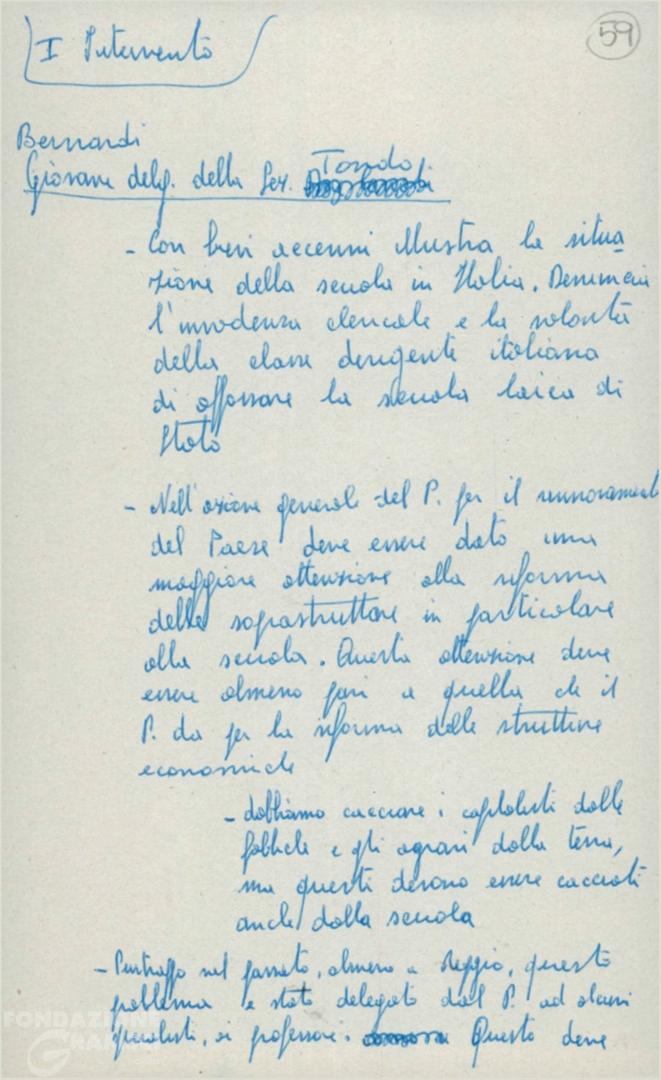 I Intervento
59
Bernardi
Giovane deleg. della Sez. Tondo
- Con brevi accenni illustra la situa
zione della scuola in Italia. Denuncia
l'invadenza clericale e la volontà
della classe dirigente italiana
di affossare la scuola laica di
Stato
- Nell'azione generale del P. per il rinnovamento
del Paese deve essere data una
maggiore attenzione alla riforma
delle soprastrutture in particolare
alla scuola. Questa attenzione deve
essere almeno pari a quella che il
P. da per la riforma delle strutture
economiche
- dobbiamo cacciare i capitalisti dalle
fabbriche e gli agrari dalla terra,
ma questi devono essere cacciati
anche dalla scuola
- Purtroppo nel passato, almeno a Reggio, questo
problema è stato delegato dal P. ad alcuni
specialisti, ai professori. Questo deve
FONDAZIONE
GRAMSCI